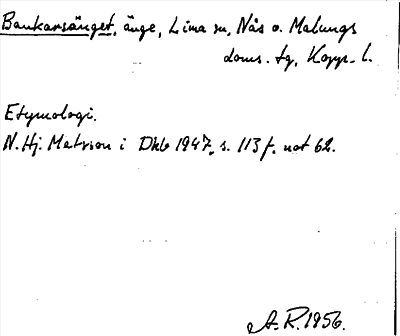 Bankarsänget, änge, Lima sn, Nås o. Malungs
doms. tg, Kopp. l.
Etymologi.
N. Hj. Matsson i Dhb 1947, s. 113 f. not 62.
A. R. 1956.